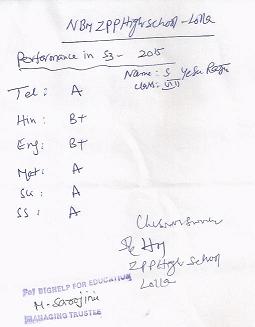 NBM ZPP High School - Lolla
Performance in S3 - 2015
Name: S Yesu Raju
Class: VIII
Tel: A
Hin: B+
Eng: B+
Mat: A
Sci: A
SS: A
ZPP High School
Lolla
For BIGHELP FOR EDUCATION
M. Sarojini
MANAGING TRUSTEE